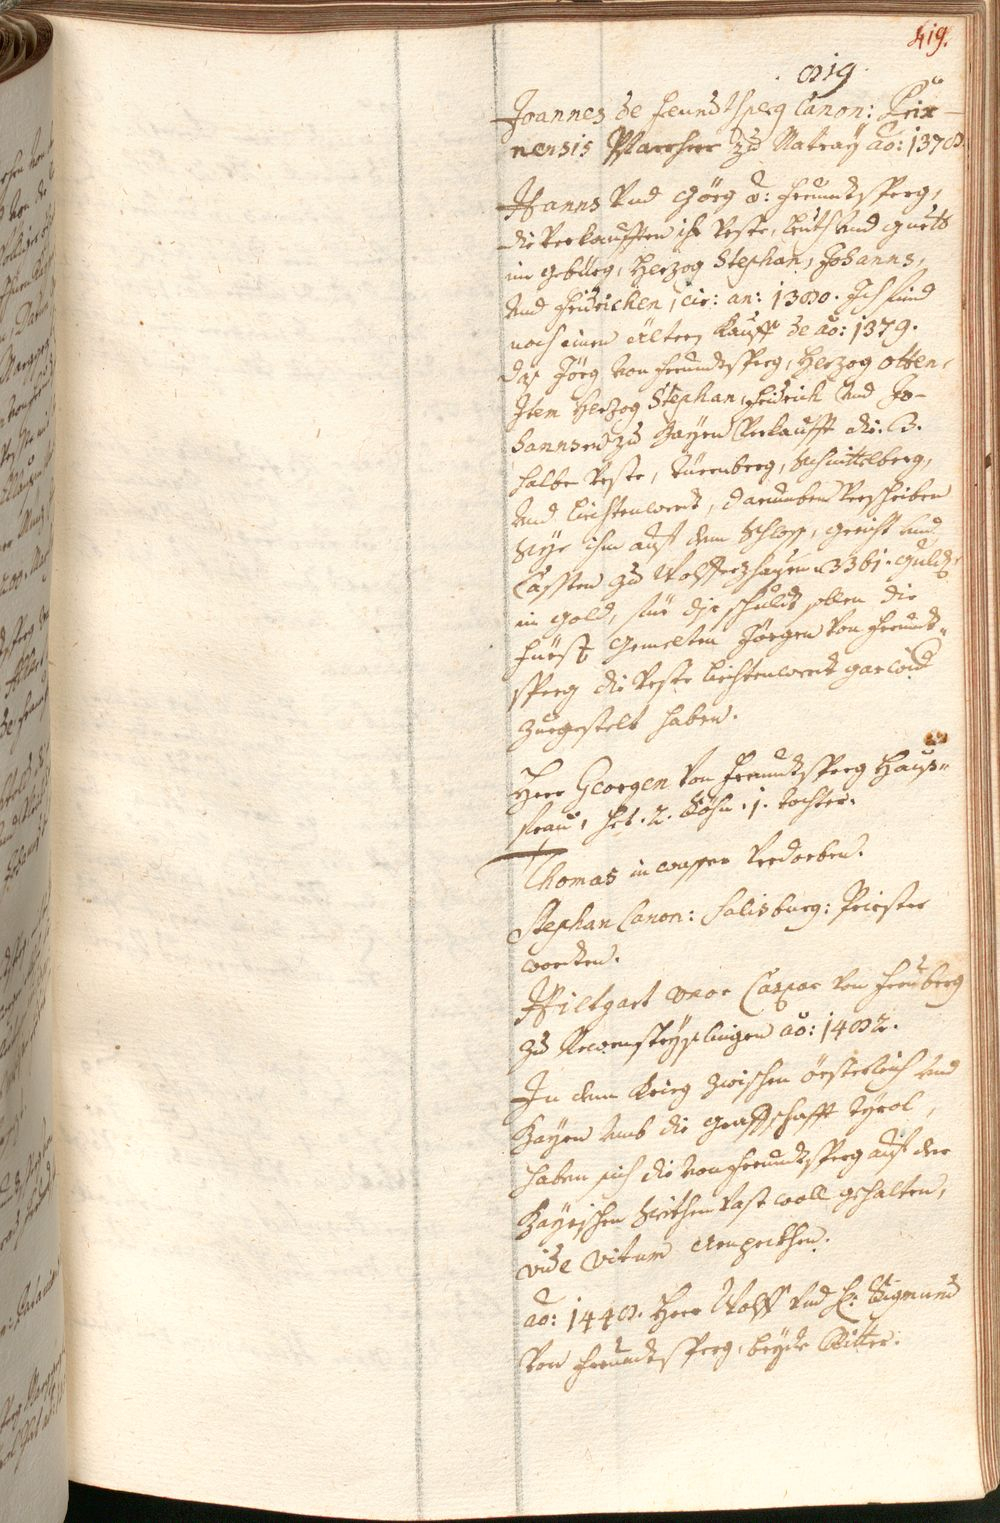 419.
819.
Joannes de freundtsperg Canon: Brix-
nensis Pfarrherr zu Matray ao: 1378.
Hanns Vnd Görg v: freundtsperg,
die Verkaufften ihr Veste, leuth Vnd guett
im gebürg, Herzog Stephan, Johanns,
Vnd fridrichen, cir: an: 1380. Ich find
noch einen eltern Kauff de ao: 1379.
das Jörg von freundtsperg, Herzog otten,
Item Herzog Stephan, fridrich Vnd Jo-
hannsen zu Bayrn Verkaufft die
halbe Veste,
Vnd liechtenwert, darumben Verschriben
Sye ihm auf dem Schloss, gericht Vnd
Cassten zu Wolffertzhausen 3361. guld
in gold, für die schuldt sollen die
fürst gemelten Jörgen von freundt-
sperg die Veste liechtenwert
zuegestelt haben.
Herr Georgen von freundtsperg Haus-
frau, het. 2. Söhn. 1. tochter.
Thomas in wasser Verdorben.
Stephan Canon: Salisburg: Priester
worden.
Hiltgart vxor Caspar von freuberg
zu ao: 1402.
In dem Krieg zwischen össterreich Vnd
Bayrn umb die graffschafft tyrol,
haben sich die von freundtsperg auf der
Bayrischen Seithen Vast woll gehalten,
vide vitum
ao: 1448. Herr Wolff Vnd H: Sigmund
Von freundtsperg, beyde Ritter.